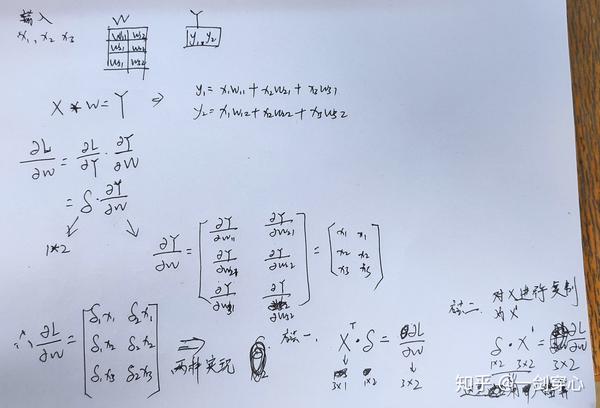 输入
x₁, x₂ x₃
W
w₁₁ w₁₂
w₂₁ w₂₂
w₃₁ w₃₂
Y
y₁, y₂
X * W = Y ⇒ y₁ = x₁w₁₁ + x₂w₂₁ + x₃w₃₁
y₂ = x₁w₁₂ + x₂w₂₂ + x₃w₃₂
∂L/∂W = ∂L/∂Y · ∂Y/∂W
= δ · ∂Y/∂W
1*2
∂Y/∂W = [∂Y/∂w₁₁ ∂Y/∂w₂₁
∂Y/∂w₂₂
∂Y/∂w₃₁] = [x₁ x₁
x₂ x₂
x₃ x₃]
∴ ∂L/∂W = [δ₁x₁ δ₂x₁
δ₁x₂ δ₂x₂
δ₁x₃ δ₂x₃]
⇒ 两种实现
方法一. Xᵀ · δ = ∂L/∂W
3*1 1*2 3*2
方法二. 对X进行复制
为X'
δ · X' = ∂L/∂W
1*2 3*2 3*2
知乎 @一剑穿心